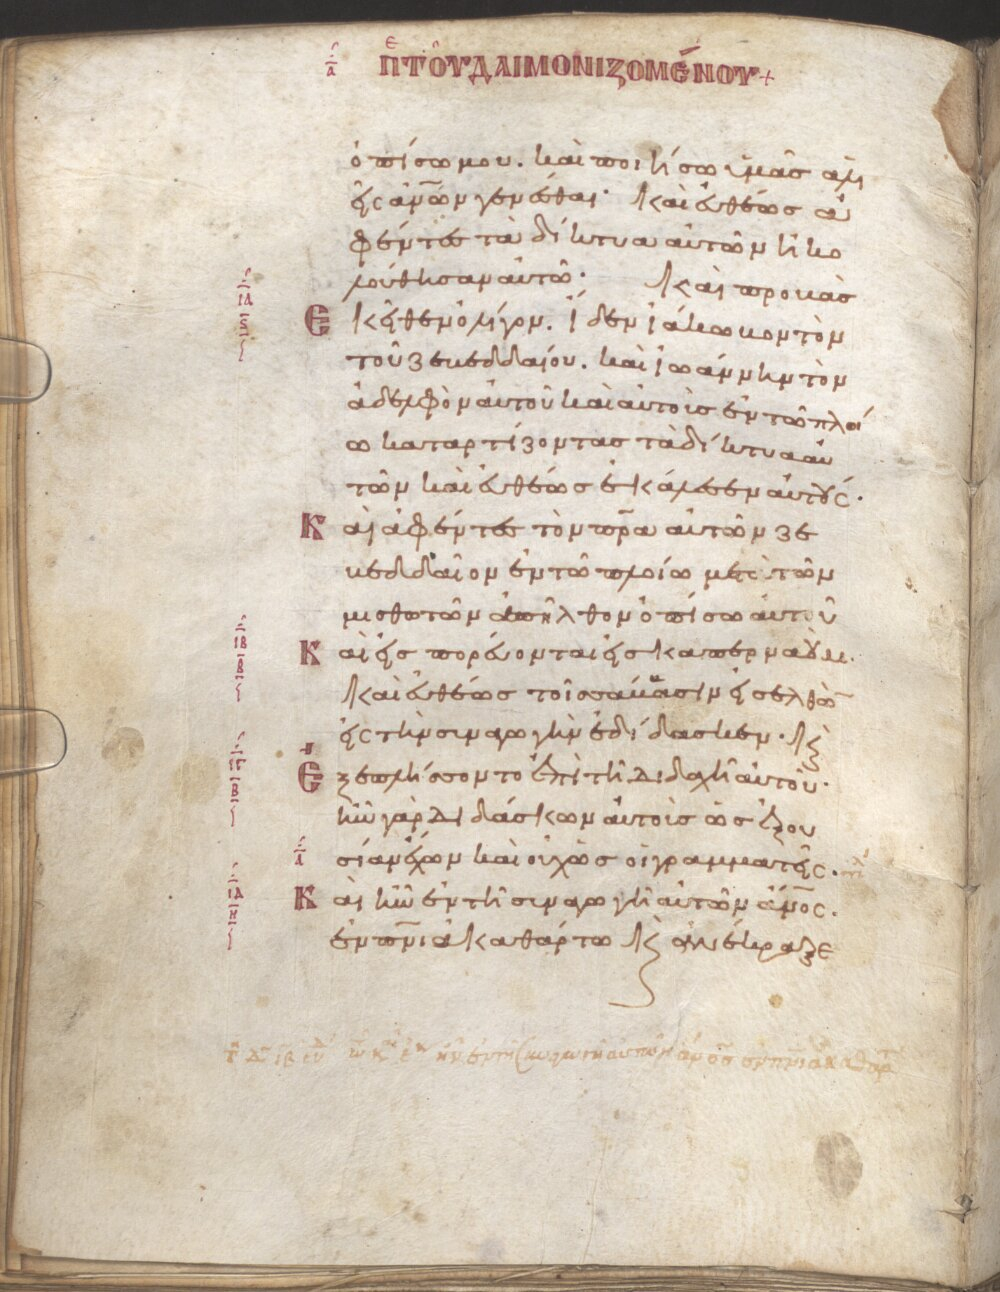 α πε τοῦ δαιμονιζομένου +
ὀπίσω μου. καὶ ποιήσω ὑμᾶς ἁλι
εῖς ἀνων γενέσθαι· Καὶ εὐθέως ἀ
φέντες τὰ δίκτυα αὐτῶν ἠκο
λούθησαν αὐτῶ· Καὶ προβὰς
Εκεῖθεν ὀλίγον. ἴδεν ἰάκωβον τὸν
τοῦ ζεβεδδαίου. καὶ ἰωάννην τὸν
ἀδελφὸν αὐτοῦ καὶ αὐτοὶς ἐν τῶ πλοί
ω καταρτίζοντας τὰ δίκτυα αὐ
τῶν καὶ εὐθέως ἐκάλεσεν αὐτούς.
Καὶ ἀφέντες τὸν πρα αὐτῶν ζε
βεδδαῖον ἐν τῶ πλοίω μετὰ τῶν
μισθωτῶν ἀπῆλθον ὀπίσω αὐτοῦ
Καὶ εἰσπορεύονται εἰς καπερναούμ.
Καὶ εὐθέως τοῖς σάββασιν εἰσελθὼ
εἰς τὴν συναγωγὴν ἐδίδασκεν. Κ
Εξεπλήσσοντο ἐπὶ τῆ διδαχῆ αὐτοῦ·
ἦν γὰρ διδάσκων αὐτοὶς ὡς ἐξου
σίαν ἔχων καὶ οὐχ ὡς οἱ γραμματεῖς.
Καὶ ἦν ἐν τῆ συναγωγῆ αὐτῶν ἄνος.
ἐν πνι ἀκαθάρτω κ ἀνέκραξε